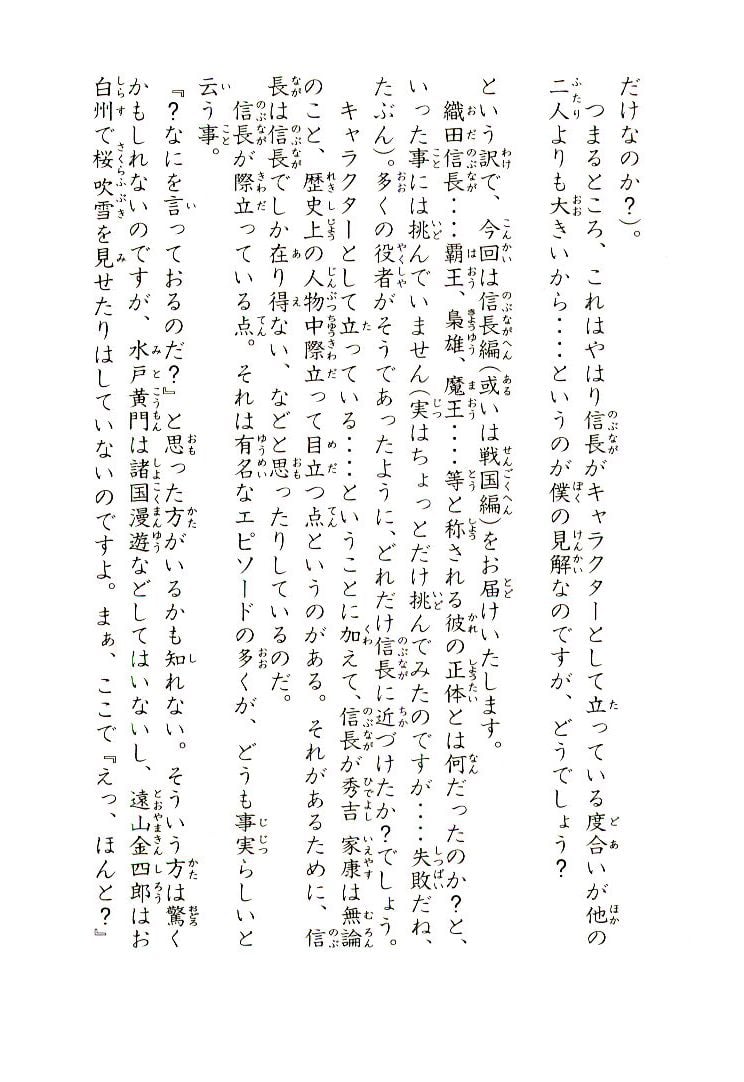 だけなのか？）。
つまるところ、これはやはり信長がキャラクターとして立っている度合いが他の
二人よりも大きいから‥‥というのが僕の見解なのですが、どうでしょう？
という訳で、今回は信長編（或いは戦国編）をお届けいたします。
織田信長‥‥覇王、梟雄、魔王‥‥等と称される彼の正体とは何だったのか？と、
いった事には挑んでいません（実はちょっとだけ挑んでみたのですが‥‥失敗だね、
たぶん）。多くの役者がそうであったように、どれだけ信長に近づけたか？でしょう。
キャラクターとして立っている‥‥ということに加えて、信長が秀吉 家康は無論
のこと、歴史上の人物中際立って目立つ点というのがある。それがあるために、信
長は信長でしか在り得ない、などと思ったりしているのだ。
信長が際立っている点。それは有名なエピソードの多くが、どうも事実らしいと
云う事。
『？なにを言っておるのだ？』と思った方がいるかも知れない。そういう方は驚く
かもしれないのですが、水戸黄門は諸国漫遊などしてはいないし、遠山金四郎はお
白州で桜吹雪を見せたりはしていないのですよ。まぁ、ここで『えっ、ほんと？』